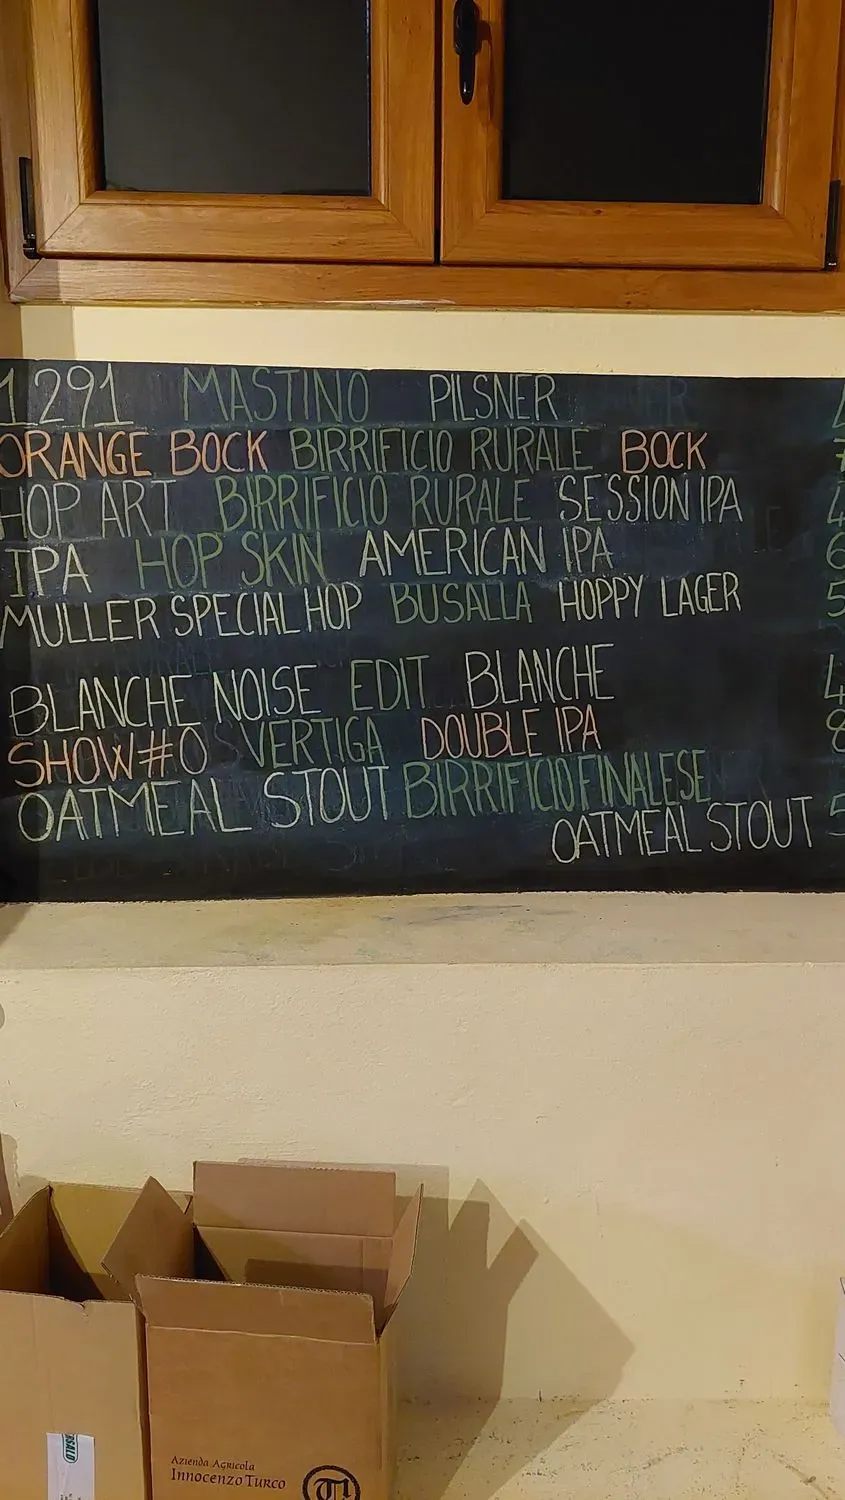 1291 MASTINO PILSNER
ORANGE BOCK BIRRIFICIO RURALE BOCK 7
HOP ART BIRRIFICIO RURALE SESSION IPA 4
IPA HOP SKIN AMERICAN IPA 6
MULLER SPECIAL HOP BUSALLA HOPPY LAGER 5
BLANCHE NOISE EDIT BLANCHE 4
SHOW#0 VERTIGA DOUBLE IPA 8
OATMEAL STOUT BIRRIFICIO FINALESE
OATMEAL STOUT 5
Azienda Agricola
Innocenzo Turco